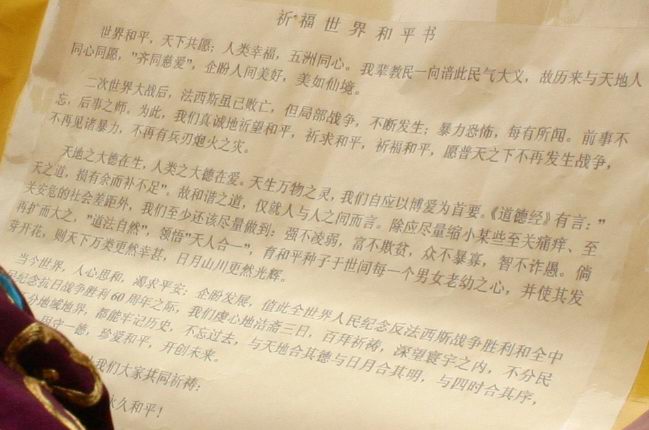 祈福世界和平书
世界和平，天下共愿；人类幸福，五洲同心。我辈教民一向谙此民气大义，故历来与天地人
同心同愿，"齐同慈爱"，企盼人间美好，美如仙境。
二次世界大战后，法西斯虽已败亡，但局部战争，不断发生；暴力恐怖，每有所闻。前事不
忘，后事之师。为此，我们真诚地祈望和平，祈求和平，祈福和平，愿普天之下不再发生战争，
不再见诸暴力，不再有兵刃炮火之灾。
天地之大德在生，人类之大德在爱。天生万物之灵，我们自应以博爱为首要。《道德经》有言："
天之道，损有余而补不足"。故和谐之道，仅就人与人之间而言。除应尽量缩小某些至关痛痒、至
关安危的社会差距外，我们至少还该尽量做到：强不凌弱，富不欺贫，众不暴寡，智不诈愚。倘
再扩而大之，"道法自然"，领悟"天人合一"，育和平种子于世间每一个男女老幼之心，并使其发
芽开花，则天下万类更然幸甚，日月山川更然光辉。
当今世界，人心思和，渴求平安，企盼发展，值此全世界人民纪念反法西斯战争胜利和全中
民纪念抗日战争胜利60周年之际，我们虔心地洁斋三日，百拜祈祷，深望寰宇之内，不分民
分地域地界，都能牢记历史，不忘过去，与天地合其德与日月合其明，与四时合其序，
同守一德，珍爱和平，开创未来。
我们大家共同祈祷：
永久和平！